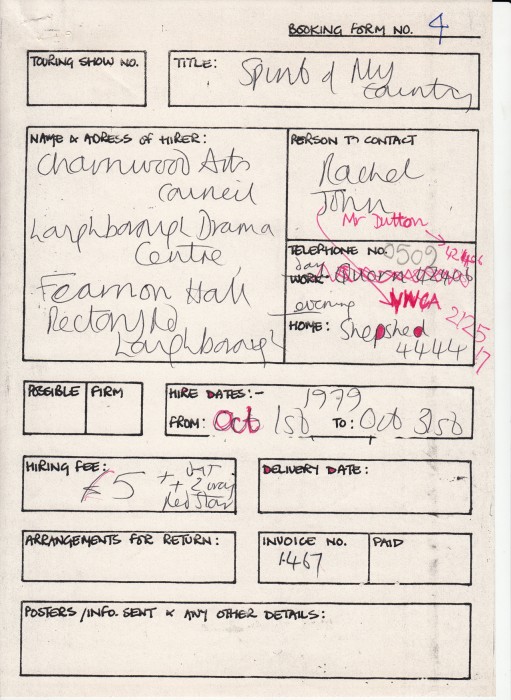 BOOKING FORM NO. 4
TOURING SHOW NO.
TITLE: Spirit of My
Country
NAME & ADRESS of HIRER:
Charnwood Arts
Council
Loughborough Drama
Centre,
Fearnon Hall
Rectory Rd
Loughborough
PERSON To CONTACT
Rachel
John
Mr Dutton
TELEPHONE NO. 0509
day
WORK: Quorn
YWCA
evening
HOME: Shepshed
4444
2125
17
POSSIBLE
FIRM
HIRE DATES:- 1979
FROM: Oct 1st TO: Oct 31st
HIRING FEE:
£5 + VAT
+ 2 way
Red Star
DELIVERY DATE:
ARRANGEMENTS FOR RETURN:
INVOICE NO.
1467
PAID
POSTERS / INFO. SENT & ANY OTHER DETAILS: